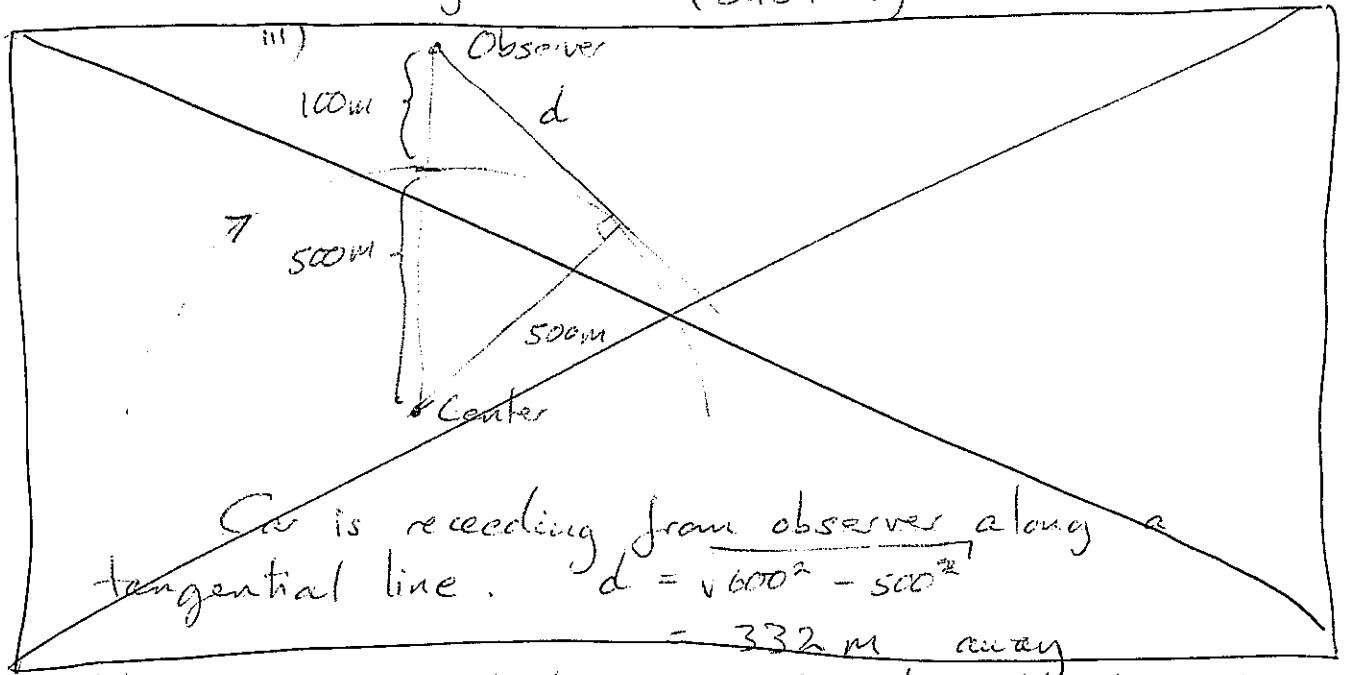 iii)
Observer
100m
d
500m
500m
Center
Car is receeding from observer along a
tangential line. d = √600² - 500²
= 332 m away